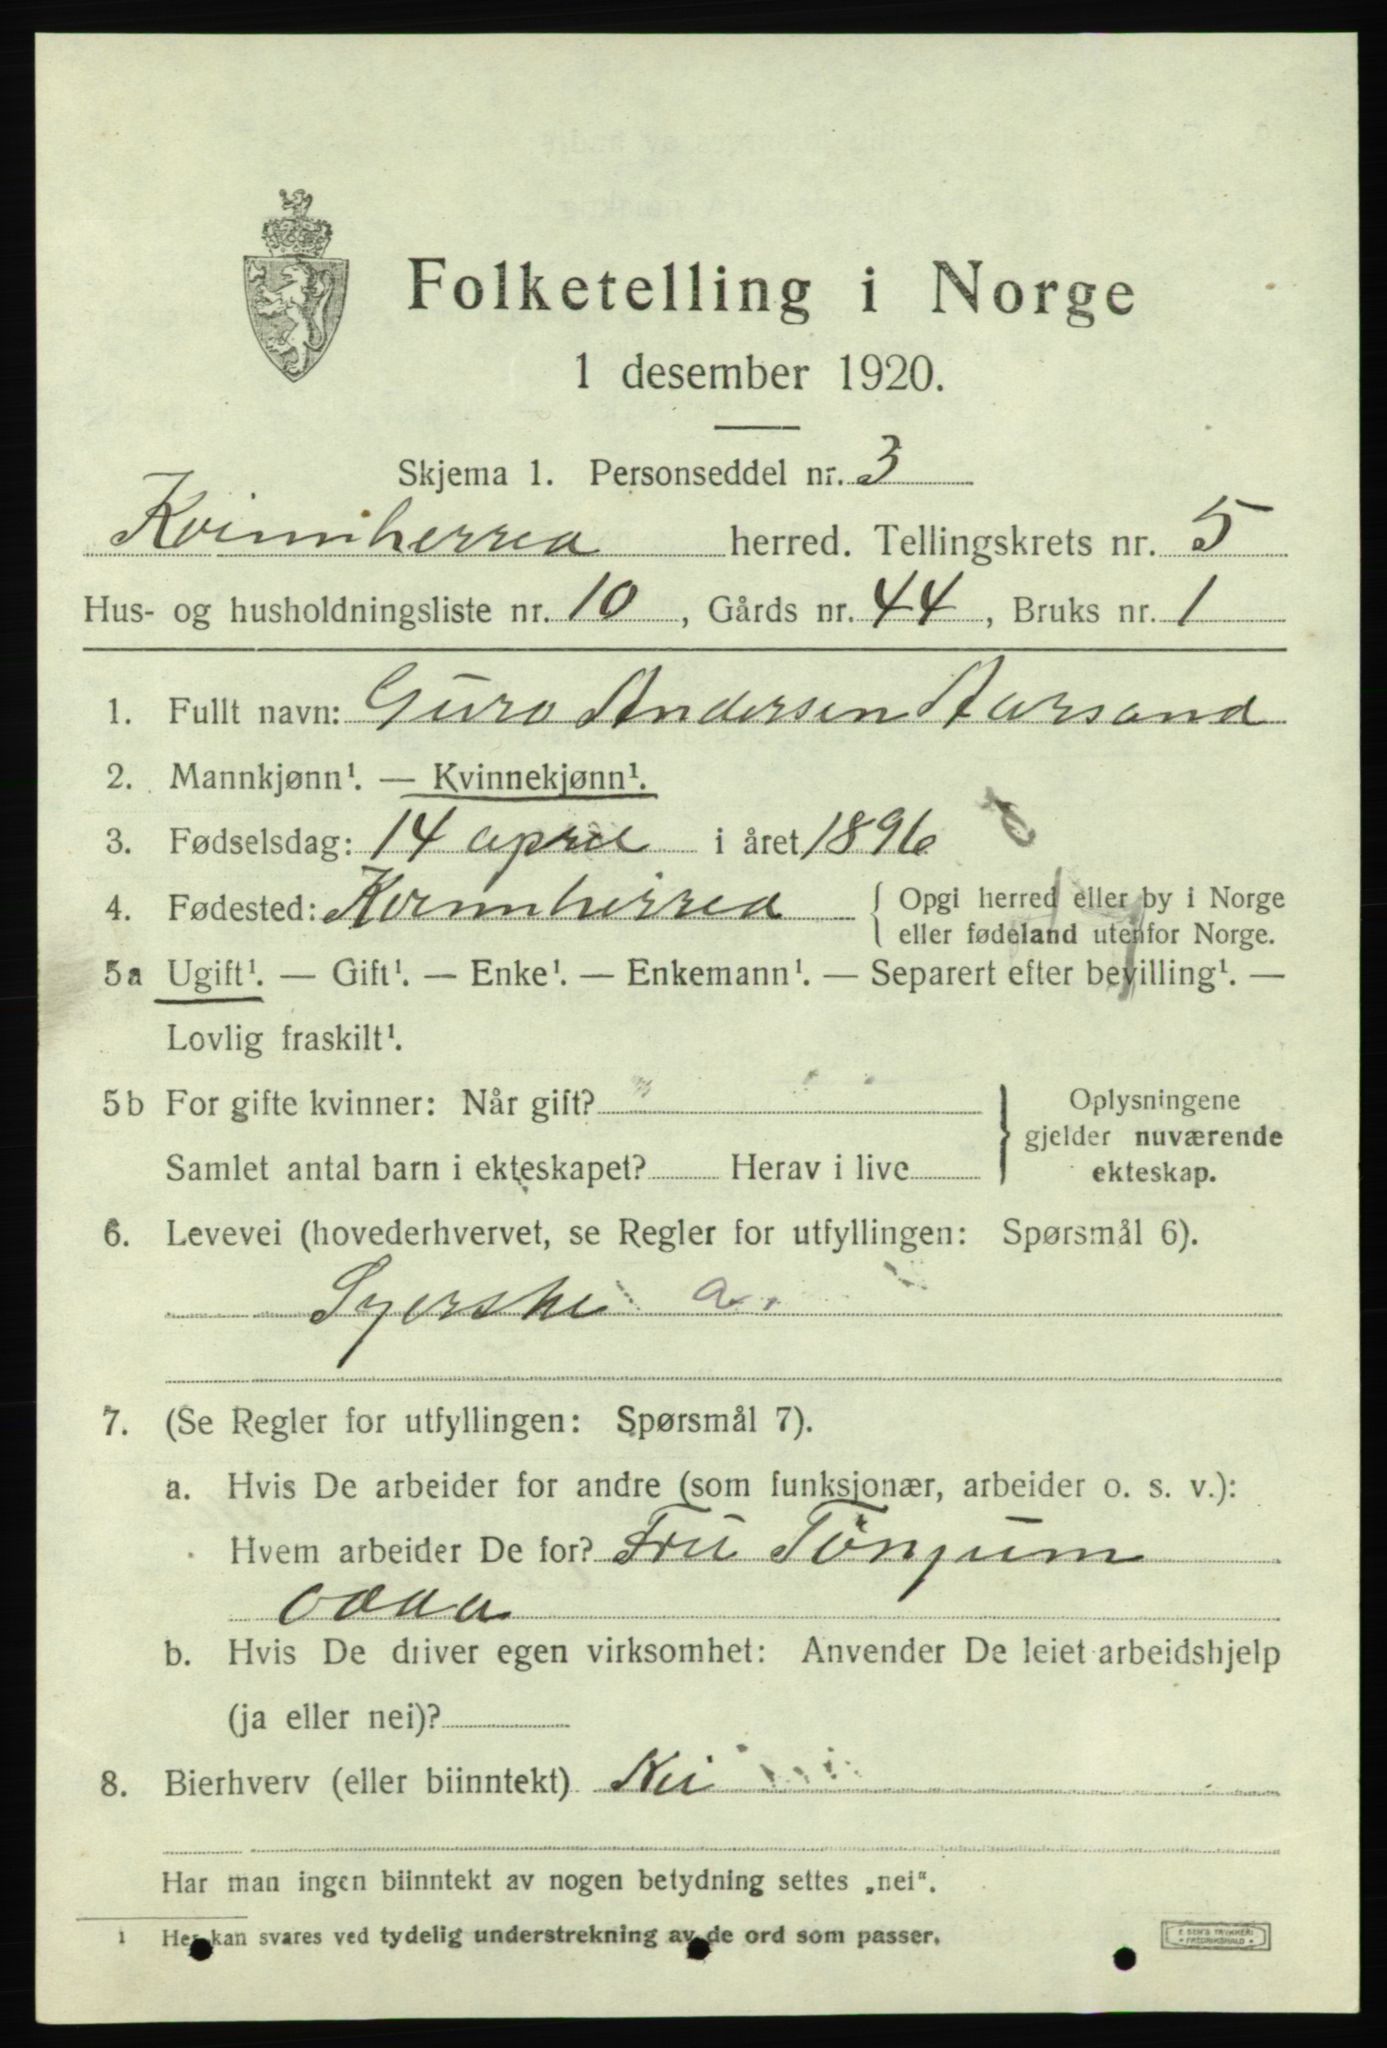 Folketelling i Norge
1 desember 1920.
Skjema 1. Personseddel nr. 3
Kvinnherred herred. Tellingskrets nr. 5
Hus- og husholdningsliste nr. 10, Gårds nr. 44, Bruks nr. 1
1. Fullt navn: Guro Andersen Aarsand
2. Mannkjønn¹. — Kvinnekjønn¹.
3. Fødselsdag: 14 april i året 1896
4. Fødested: Kvinnherred { Opgi herred eller by i Norge
eller fødeland utenfor Norge.
5a Ugift¹. — Gift¹. — Enke¹. — Enkemann¹. — Separert efter bevilling¹. —
Lovlig fraskilt¹.
5b For gifte kvinner: Når gift? } Oplysningene
gjelder nuværende
Samlet antal barn i ekteskapet? Herav i live
ekteskap.
6. Levevei (hovederhvervet, se Regler for utfyllingen: Spørsmål 6).
Syerske a.
7. (Se Regler for utfyllingen: Spørsmål 7).
a. Hvis De arbeider for andre (som funksjonær, arbeider o. s. v.):
Hvem arbeider De for? Fru Tönjum
Odda
b. Hvis De driver egen virksomhet: Anvender De leiet arbeidshjelp
(ja eller nei)?
8. Bierhverv (eller biinntekt) Nei
Har man ingen biinntekt av nogen betydning settes „nei“.
1 Her kan svares ved tydelig understrekning av de ord som passer.